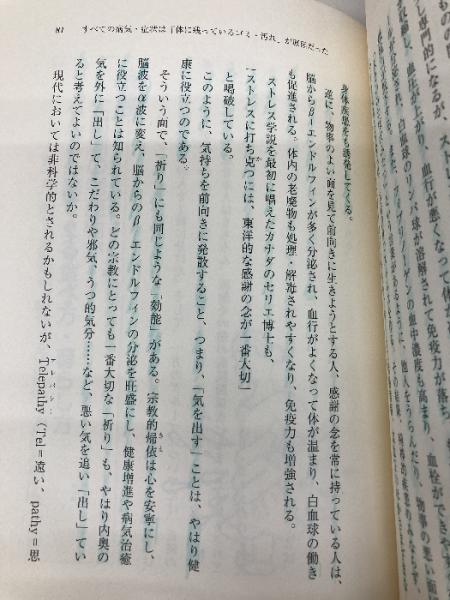 81 すべての病気・症状は「体に残っているゴミ・汚れ」が原因だった
し専門的になるが、スト
血行が悪くなって体が
球が溶解されて免疫力が落ち
の血中濃度も高まり、血栓ができ
身体疾患をも誘発してくる。
逆に、物事のよい面を見て前向きに生きようとする人、感謝の念を常に持っている人は、
脳からβ-エンドルフィンが多く分泌され、血行がよくなって体が温まり、白血球の働き
も促進される。体内の老廃物も処理・解毒されやすくなり、免疫力も増強される。
ストレス学説を最初に唱えたカナダのセリエ博士も、
「ストレスに打ち克つには、東洋的な感謝の念が一番大切」
と喝破している。
このように、気持ちを前向きに発散すること、つまり、「気を出す」ことは、やはり健
康に役立つのである。
そういう面で、「祈り」にも同じような「効能」がある。宗教的帰依は心を安寧にし、
脳波をα波に変え、脳からのβ-エンドルフィンの分泌を旺盛にし、健康増進や病気治癒
に役立つことは知られている。どの宗教にとっても一番大切な「祈り」も、やはり内奥の
気を外に「出し」て、こだわりや邪気、うつ的気分……など、悪い気を追い「出し」てい
ると考えてよいのではないか。
現代においては非科学的とされるかもしれないが、Telepathy（Tel＝遠い、pathy＝思